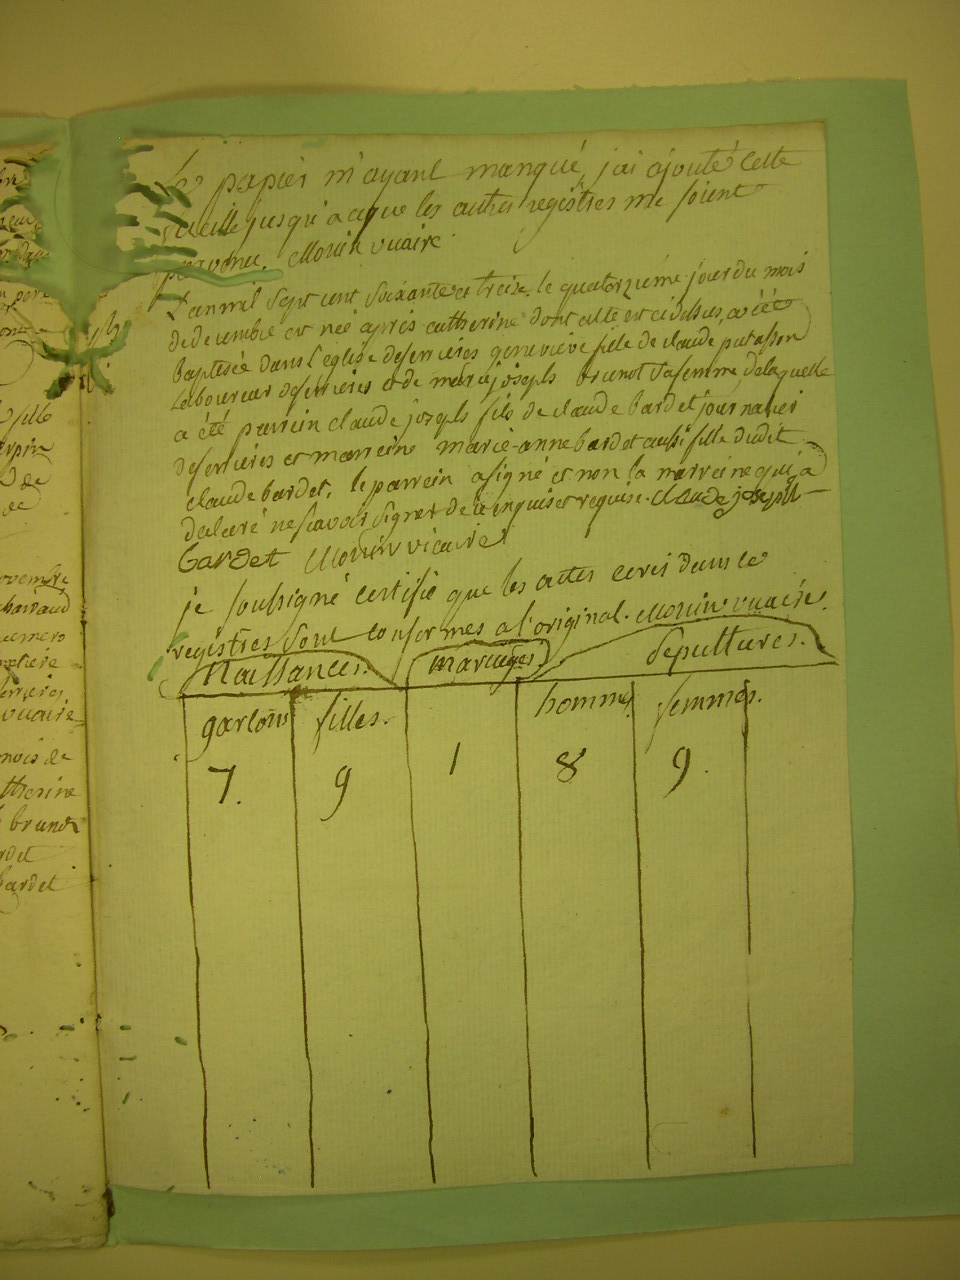 Le papier m'ayant manqué, j'ai ajouté cette
feuille jusqu'a ceque les autres registres me soient
parvenu. Monin vicaire
L'an mil sept cent soixante et treize le quatorzieme jour du mois
de decembre est née après catherine dont acte est cidessus, a été
baptisée dans l'église deferrieres geneviève fille de claude putasson
laboureur deferrieres et de marie joseph brunot sa femme, delaquelle
a été parrein claude joseph fils de claude bardet journalier
deferrieres et marreine marie-anne bardet aussi fille dudit
claude bardet, le parrein a signé et non la marreine qui a
declaré ne scavoir signer de ce enquise et requise. claude joseph
bardet Monin vicaire
je soussigné certifie que les actes ecris dans ce
registres sont conformes a l'original. Monin vicaire.
Naissances. mariages. sepultures.
garcons filles. hommes femmes.
7. 9 1 8 9.
ovembre
de
de
vicaire
mois de
therine
brunot
rdet
bardet